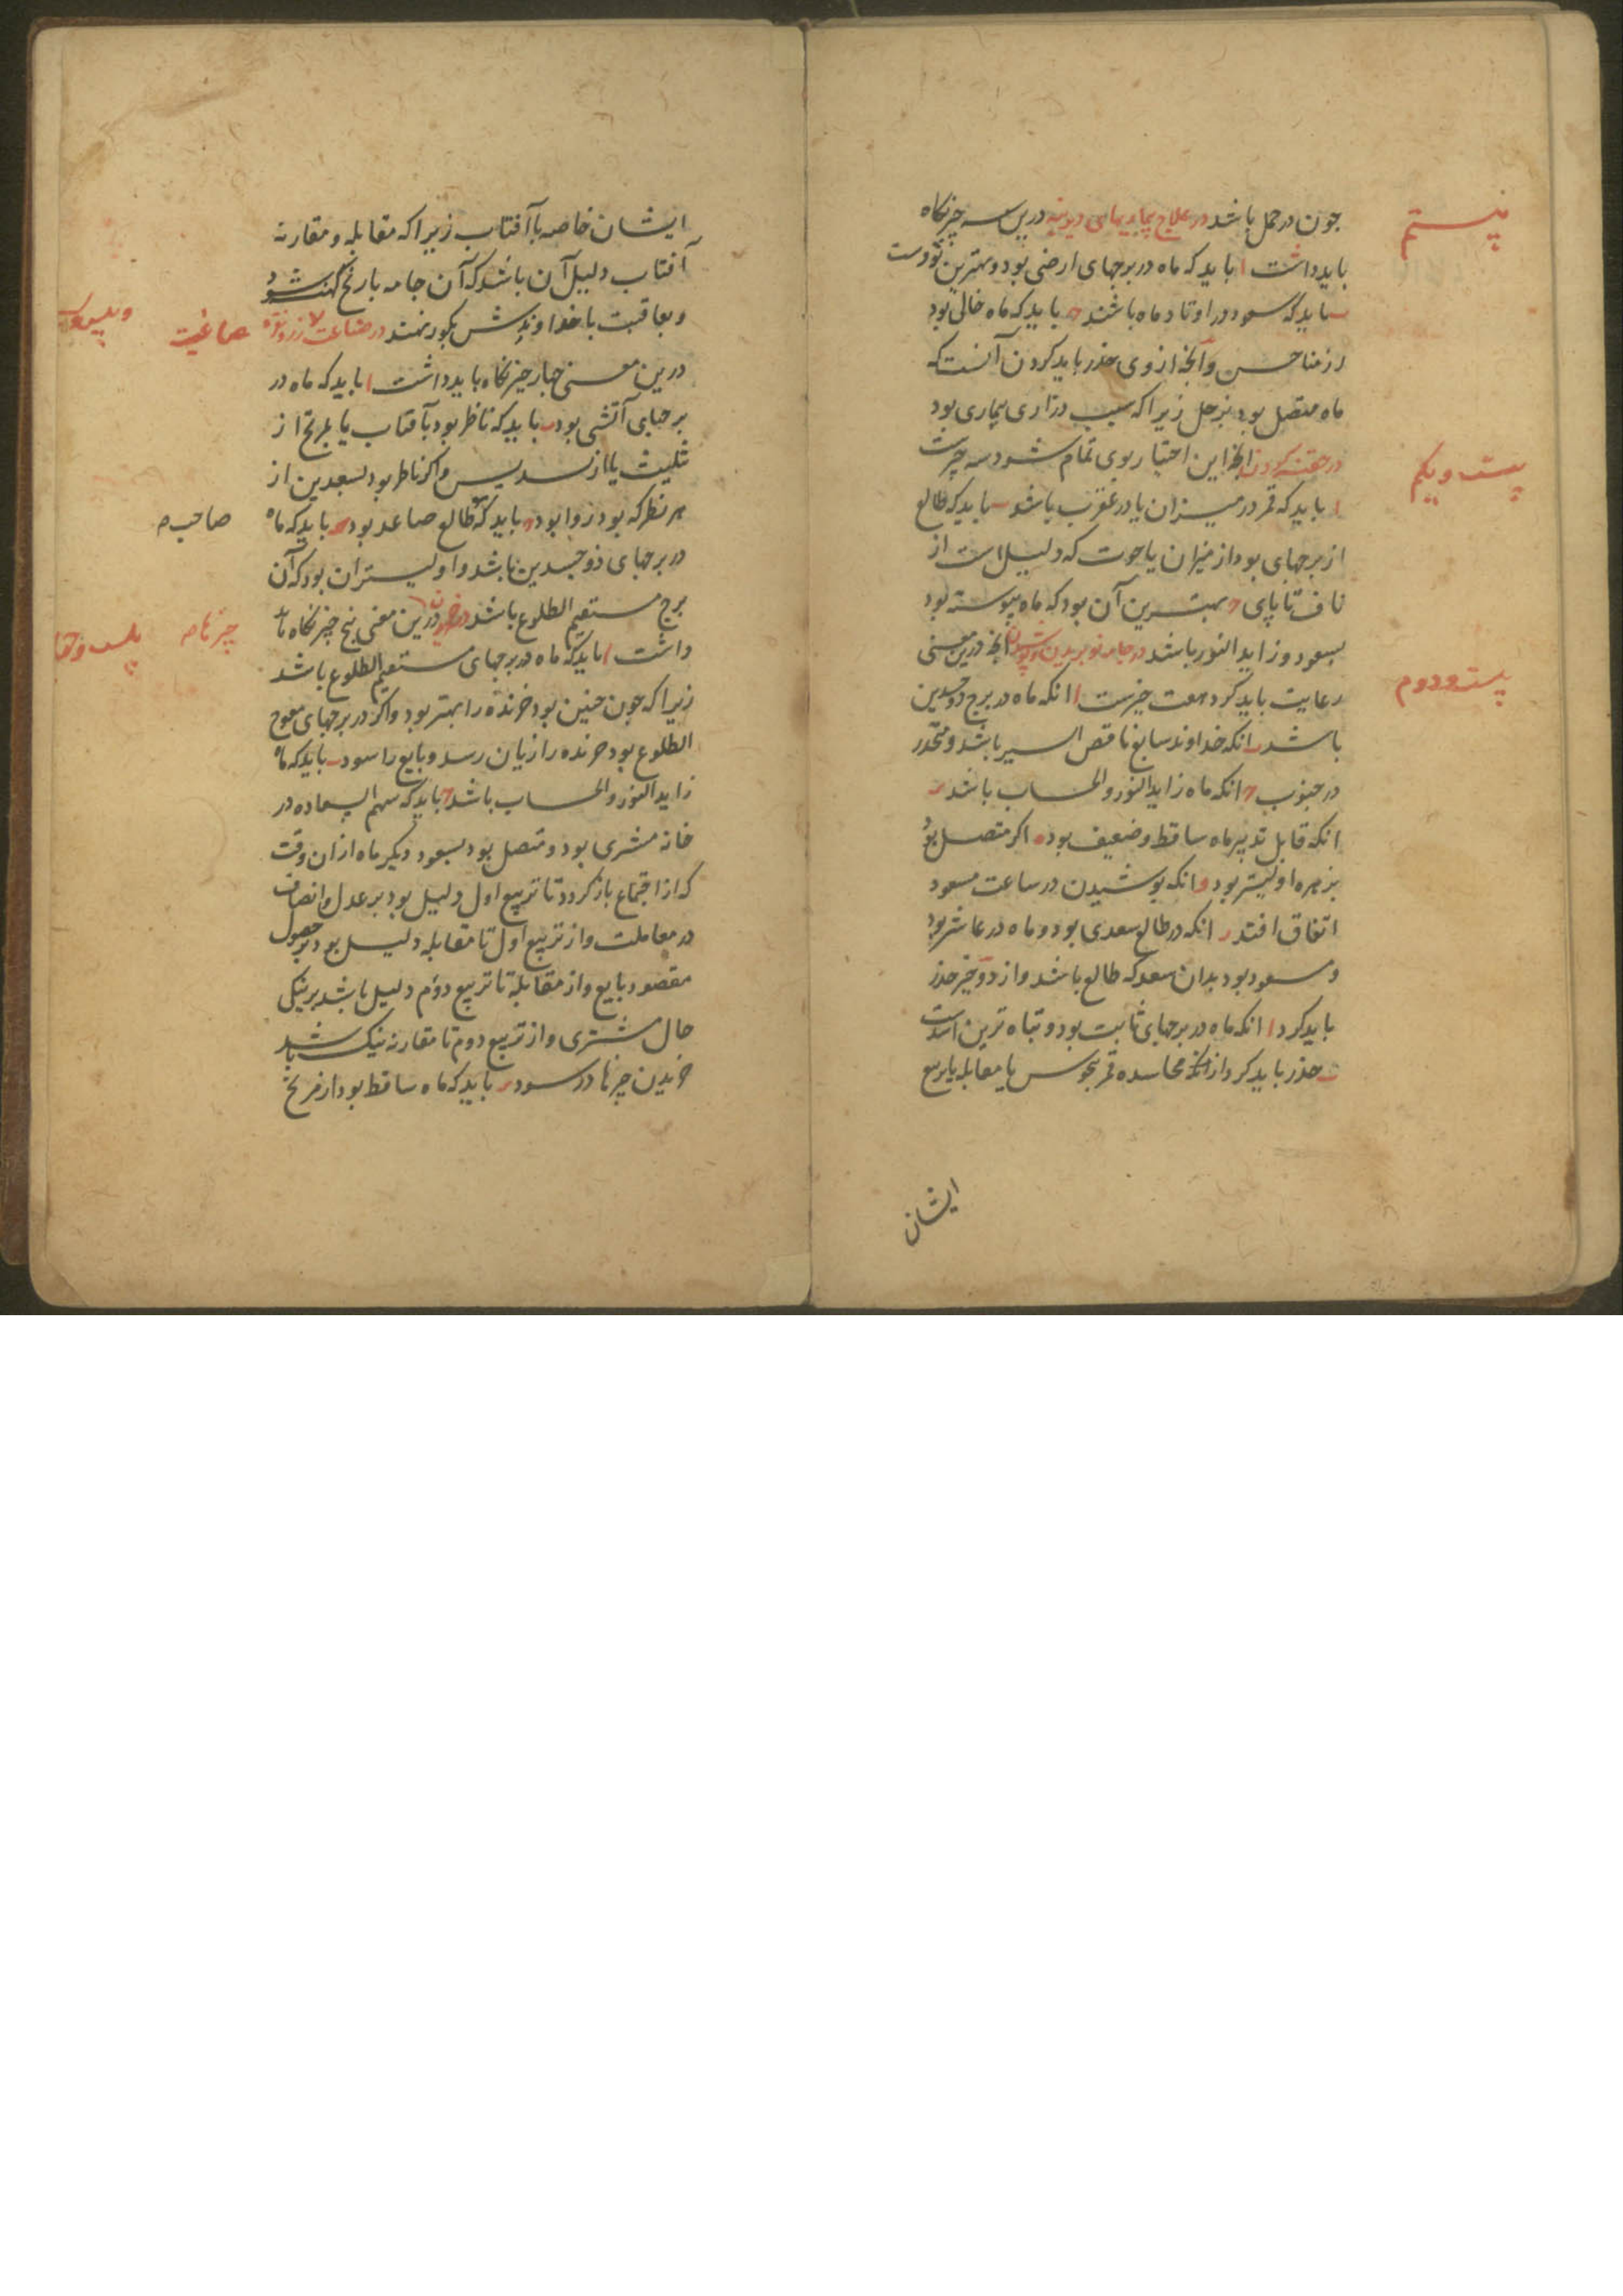 چون در حمل باشد در علاج بیماریهای دیرینه درین سه چیز نکاه
بیستم
باید داشت ا باید که ماه در برجهای ارضی بود و بهترین ثورست
ب باید که سعود در اوتاد ماه باشند ح باید که ماه خالی بود
از مناحس و آنچه از وی حذر باید کردن آنست که
ماه متصل بود بزحل زیرا که سبب درازی بیماری بود
در حقنه کردن آنچه این اختیار بوی تمام شود سه چیزست
بیست ویکم
ا باید که قمر در میزان یا در عقرب باشد ب باید که طالع
از برجهای بود از میزان یا حوت که دلیل است از
ناف تا پای ح بهترین آن بود که ماه پیوسته بود
بسعود و زاید النور باشد در جامه نو بریدن و پوشیدن آنچه درین معنی
رعایت باید کرد هفت چیزست ا انکه ماه در برج ذوجسدین
بیست ودوم
باشد ب انکه خداوند سابع ناقص السیر باشد و منحدر
در جنوب ح انکه ماه زاید النور والحساب باشد د
انکه قابل تدبیر ماه ساقط و ضعیف بود ه اکر متصل بود
بزهره اولیتر بود و انکه پوشیدن در ساعت مسعود
اتفاق افتد ز انکه در طالع سعدی بود و ماه در عاشر بود
و مسعود بود بدان سعد که طالع باشد و از دو چیز حذر
باید کرد ا انکه ماه در برجهای ثابت بود و تباه ترین اسدست
ب حذر باید کرد از انکه محاسده قمر بنحوس یا مقابله یا تربیع
ایشان
ایشان خاصه با آفتاب زیرا که مقابله و مقارنه
آفتاب دلیل آن باشد که آن جامه بارنج کهنه شود
و بعاقبت با خداوندش بکور نهند در صناعت زر و نقره
صاغیت
درین معنی چهار چیز نکاه باید داشت ا باید که ماه در
برجهای آتشی بود ب باید که ناظر بود بآفتاب یا بمریخ از
تثلیث یا از تسدیس و اکر ناظر بود بسعدین از
هر نظر که بود روا بود ح باید که طالع صاعد بود د باید که ماه
صاحب
در برجهای ذوجسدین باشد و اولیتر آن بود که آن
برج مستقیم الطلوع باشد در خریدن درین معنی پنج چیز نکاه باید
چیزها
داشت ا باید که ماه در برجهای مستقیم الطلوع باشد
زیرا که چون چنین بود خرنده را بهتر بود و اکر در برجهای معوج
الطلوع بود خرنده را زیان رسد و بایع را سود ب باید که ماه
زاید النور والحساب باشد ح باید که سهم السعاده در
خانه مشتری بود و متصل بود بسعود دیکر ماه از ان وقت
که از اجتماع باز کردد تا تربیع اول دلیل بود بر عدل و انصاف
در معاملت و از تربیع اول تا مقابله دلیل بود بر حصول
مقصود بایع و از مقابله تا تربیع دوم دلیل باشد بر نیکی
حال مشتری و از تربیع دوم تا مقارنه نیک باشد
خریدن چیزها در سود د باید که ماه ساقط بود از مریخ